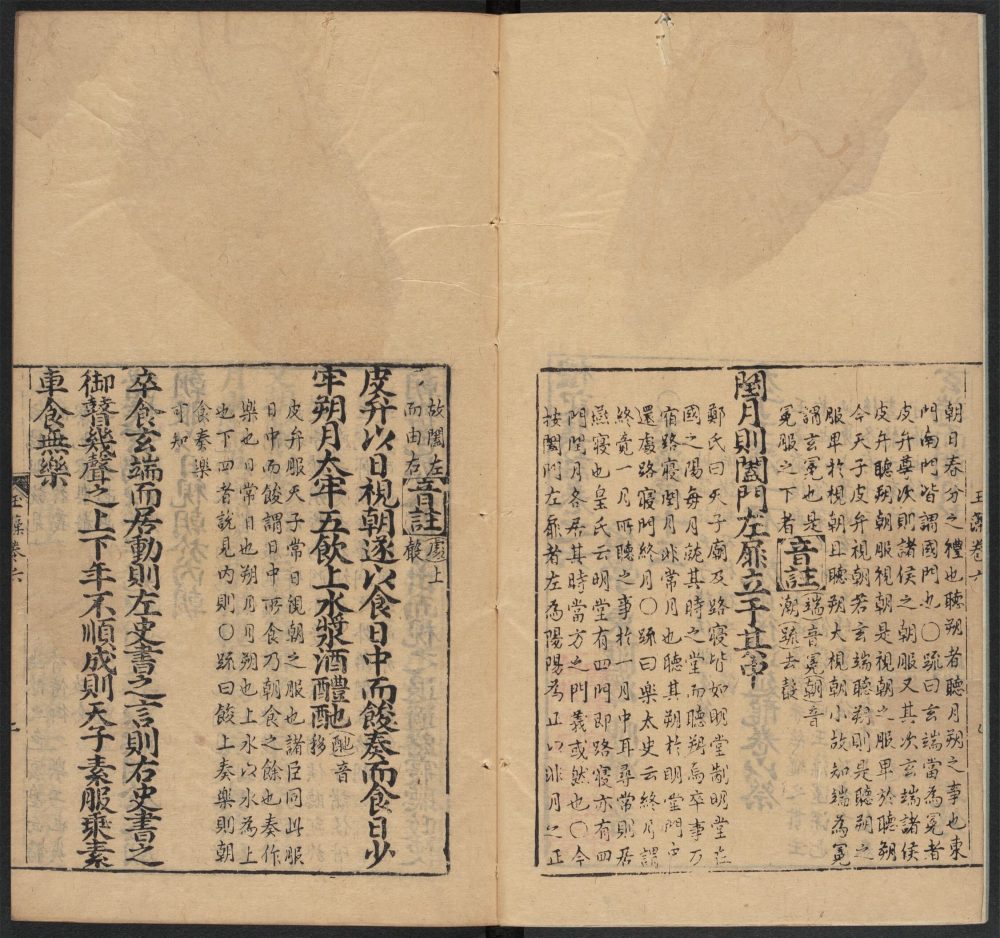 玉藻卷六
朝日春分之禮也聽朔者聽月朔之事也東
門南門皆謂國門也○疏曰玄端當為冕者
皮弁尊次則諸侯之朝服又其次玄端諸侯
皮弁聽朔朝服視朝是視朝之服卑於聽朔
今天子皮弁視朝若玄端聽朔則是聽朔之
服卑於視朝且聽朔大視朝小故知端為冕
謂玄冕也是 音註 端音冕朝音
冕服之下者 潮疏去聲
閏月則闔門左扉立于其中
鄭氏曰天子廟及路寢皆如明堂制明堂在
國之陽每月就其時之堂而聽朔焉卒事乃
宿路寢閏月非常月也聽其朔於明堂門中
還處路寢門終月○疏曰樂太史云終月謂
終竟一月所聽之事於一月中耳尋常則居
燕寢也皇氏云明堂有四門即路寢亦有四
門閏月各居其時當方之門義或然也○今
按闔門左扉者左為陽陽為正以非月之正
故闔左
而由右 音註 處上聲
皮弁以日視朝遂以食日中而餕奏而食日少
牢朔月大牢五飲上水漿酒醴酏 酏音移
皮弁服天子常日視朝之服也諸臣同此服
日中而餕謂日中所食乃朝食之餘也奏作
樂也日常日也朔月月朔也上水以水為上
也下四者說見内則○疏曰餕上奏樂則朝
食奏樂
可知
卒食玄端而居動則左史書之言則右史書之
御瞽幾聲之上下年不順成則天子素服乘素
車食無樂
玉藻卷六